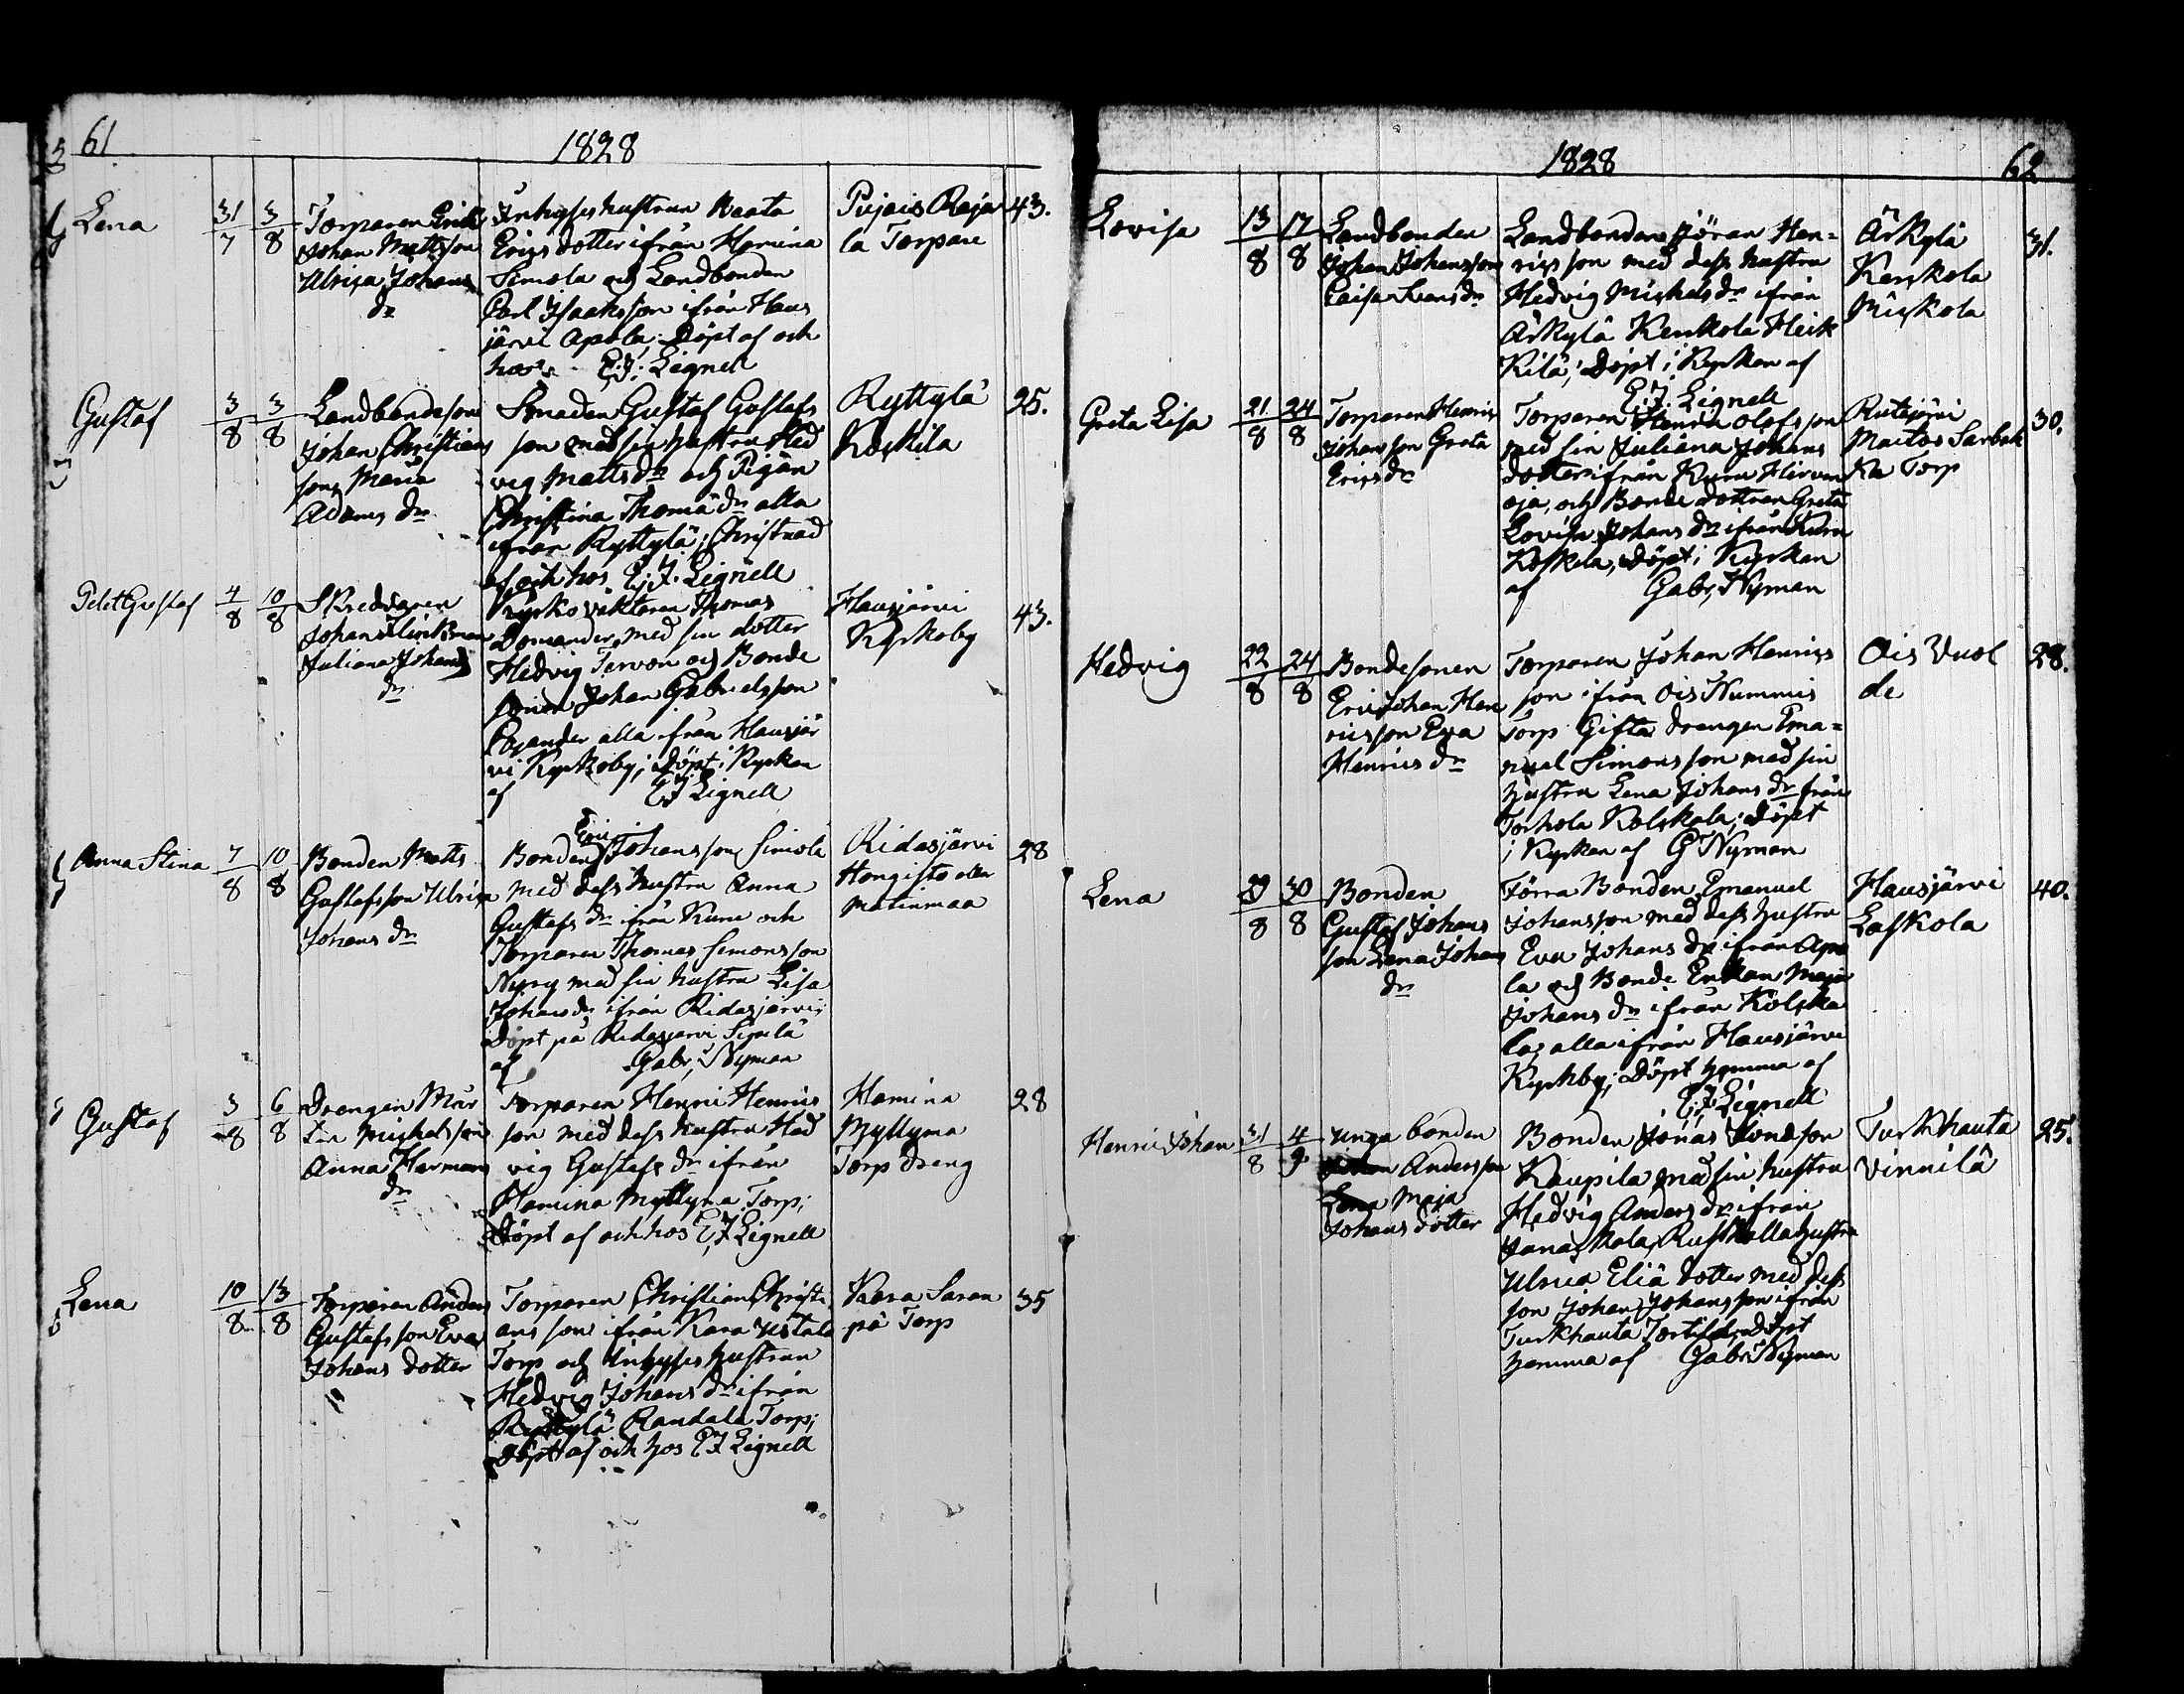 61
1828
Lena
31/7
3/8
Torparen Erick
Johan Mattsson
Ulrica Johans
dr
Inhyses hustrun Kaata
Erics dotter ifrån Hamina
Simola och Landbonden
Carl Isaaksson ifrån Haus
järvi Apola; Döpt af och
hos E.J. Lignell
Pujais Raja
la Torpare
43.
Gustaf
3/8
3/8
Landbondeson
Johan Christians
son, Maria
Adams dr
Smeden Gustaf Gustafs
son med sin hustru Hed
vig Matts dr och Pigan
Christina Thomä dr alla
ifrån Ryttylä; Christnad
af och hos E.J. Lignell
Ryttylä
Koskila
25.
Gustaf
4/8
10/8
Skreddaren
Johan
Juliana Johans
dr
Kyrkoväktaren Thomas
Domander med sin dotter
Hedvig Tarvon och Bonde
sonen Johan Gabrielsson
alla ifrån Hausjär
vi Kyrkoby; Döpt i Kyrkan
af E J Lignell
Hausjärvi
Kyrkoby
43.
Anna Stina
7/8
10/8
Bonden Matts
Gustafsson Ulrica
Johans dr
Bonden Eric Johansson Simola
med dess hustru Anna
Gustafs dr ifrån Kuru och
Torparen Thomas Simonsson
Nyry med sin hustru Lisa
Johans dr ifrån Ridasjärvi;
Döpt på Ridasjärvi Sipilä
af Gabr. Nyman
Ridasjärvi
Hongisto eller
Matinmaa
28
Gustaf
3/8
6/8
Drengen Mår
ten Michelsson
Anna Hermans
dr
Torparen Henric Henrics
son med dess hustru Hed
vig Gustafs dr ifrån
Hamina Myllyma Torp;
Döpt af och hos E J Lignell
Hamina
Myllyma
Torp dreng
28
Lena
10/8
13/8
Torparen Anders
Gustafsson Eva
Johans dotter
Torparen Christian Christi
ans son ifrån Kara Ustala
Torp och Inhyses hustrun
Hedvig Johans dr ifrån
Ryttylä Randala Torp;
Döpt af och hos E J Lignell
Kara Saran
pä Torp
35
1828
62
Lovisa
13/8
17/8
Landbonden
Johan Johansson
Caisa
Landbonden Jöran Hen=
rics son med dess hustru
Hedvig Michels dr ifrån
Arkylä Kenkola Heik
Kilä; Döpt i Kyrkan af
E.J. Lignell
Arkylä
Kenkola
Miskola
31.
Greta Lisa
21/8
24/8
Torparen Henric
Johansson Greta
Erics dr
Torparen Henric Olofsson
med sin Juliana Johans
dotter ifrån Kuru Hirvon
oja, och Bonde dottren Greta
Lovisa Johans dr ifrån Kuru
Koskela, Döpt i Kyrkan
af Gabr, Nyman
Rutajärvi
Maitos
Ka Torp
30.
Hedvig
22/8
24/8
Bondesonen
Eric Johan Hen
ricsson Eva
Henrics dr
Torparen Johan Henrics
son ifrån Ois Nummis
Torp Gifta drengen Ema=
nuel Simonsson med sin
hustru Lena Johans dr från
Torhola Kolskala; Döpt
i Kyrkan af G Nyman
Ois Vuol
de
28.
Lena
29/8
30/8
Bonden
Gustaf Johans
son Lena Johans
dr
Förra Bonden Emanuel
Johansson med dess hustru
Eva Johans dr ifrån Apo
la och Bonde Enkan Maja
Johans dr ifrån Kolska
la, alla ifrån Hausjärvi
Kyrkby; Döpt hemma af
E.J. Lignell
Hausjärvi
Laskola
40.
Henric Johan
31/8
4/9
unga bonden
Andersson
Lena Maja
Johans dotter
Bonden Jonas Jonasson
Kaupila med sin hustru
Hedvig Anders dr ifrån
Janaskala, Rusthålla hustru
Ulrica Eliä dotter med dess
son Johan Johansson ifrån
Turkhauta Tortila; Döpt
hemma af Gabr. Nyman
Turkhauta
Vinnilä
25.